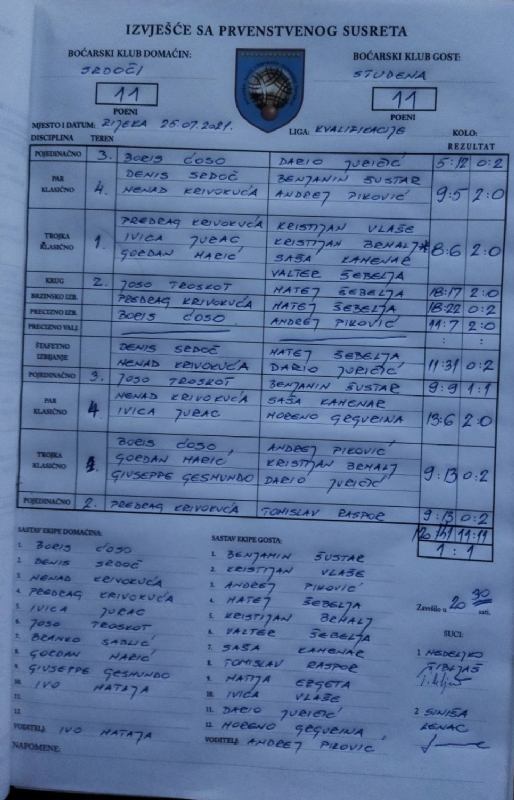 IZVJEŠĆE SA PRVENSTVENOG SUSRETA
BOĆARSKI KLUB DOMAĆIN: BOĆARSKI KLUB GOST:
SRDOČI STUDENA
11 11
POENI POENI
MJESTO I DATUM: RIJEKA 25.07.2021. LIGA: KVALIFIKACIJE KOLO:
DISCIPLINA TEREN REZULTAT
POJEDINAČNO 3. BORIS ĆOSO DARIO JURIČIĆ 5:12 0:2
PAR KLASIČNO 4. DENIS SRDOČ BENJAMIN ŠUSTAR 9:5 2:0
NENAD KRIVOKUĆA ANDREJ PIKOVIĆ
TROJKA KLASIČNO 1. PREDRAG KRIVOKUĆA KRISTIJAN VLAŠE 8:6 2:0
IVICA JURAC KRISTIJAN BRNALJ*
GORDAN MARIĆ SAŠA KAHENAR
VALTER ŠEBELJA
KRUG 2. JOSO TROSKOT MATEJ ŠEBELJA 18:17 2:0
BRZINSKO IZB. PREDRAG KRIVOKUĆA MATEJ ŠEBELJA 18:22 0:2
PRECIZNO IZB. BORIS ĆOSO ANDREJ PIKOVIĆ 11:7 2:0
PRECIZNO VALJ. : :
ŠTAFETNO IZBIJANJE DENIS SRDOČ MATEJ ŠEBELJA 11:31 0:2
NENAD KRIVOKUĆA DARIO JURIČIĆ
POJEDINAČNO 3. JOSO TROSKOT BENJAMIN ŠUSTAR 9:9 1:1
PAR KLASIČNO 4. NENAD KRIVOKUĆA SAŠA KAHENAR 13:6 2:0
IVICA JURAC MORENO GRGURINA
TROJKA KLASIČNO 1. BORIS ĆOSO ANDREJ PIKOVIĆ 9:13 0:2
GORDAN MARIĆ KRISTIJAN BRNALJ
GIUSEPPE GESMUNDO DARIO JURIČIĆ
POJEDINAČNO 2. PREDRAG KRIVOKUĆA TONISLAV RASPOR 9:13 0:2
11:11
1:1
SASTAV EKIPE DOMAĆINA: SASTAV EKIPE GOSTA:
1. BORIS ĆOSO 1. BENJAMIN ŠUSTAR
2. DENIS SRDOČ 2. KRISTIJAN VLAŠE
3. NENAD KRIVOKUĆA 3. ANDREJ PIKOVIĆ
4. PREDRAG KRIVOKUĆA 4. MATEJ ŠEBELJA Završilo u 20 30 sati.
5. IVICA JURAC 5. KRISTIJAN BRNALJ
6. JOSO TROSKOT 6. VALTER ŠEBELJA SUCI:
7. BRANKO SABLIĆ 7. SAŠA KAHENAR 1. NEDELJKO
8. GORDAN MARIĆ 8. TOMISLAV RASPOR
9. GIUSEPPE GESMUNDO 9. MATIJA ERGETA
10. IVO MATAJA 10. IVICA VLAŠE
11. 11. DARIO JURIČIĆ 2. SINIŠA
12. 12. MORENO GRGURINA LENAC
VODITELJ: IVO MATAJA VODITELJ: ANDREJ PIKOVIĆ
NAPOMENE: